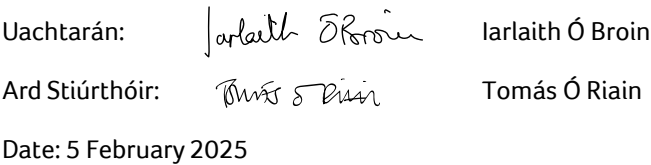 Uachtarán: Iarlaith Ó Broin Iarlaith Ó Broin
Ard Stiúrthóir: Tomás Ó Riain Tomás Ó Riain
Date: 5 February 2025